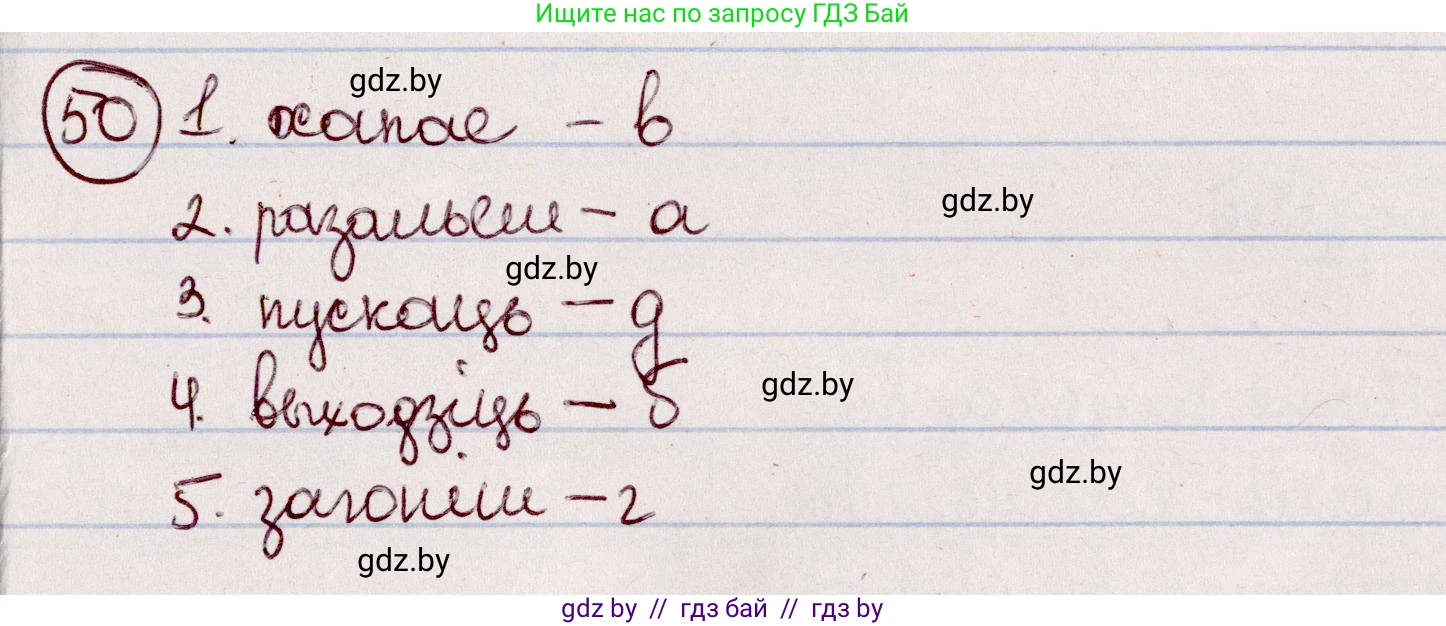 Ищите нас по запросу ГДЗ Бай
gdz.by
50 1. хапае – в
2. разальеш – а
gdz.by
gdz.by
3. пускаць – д
4. выходзіць – б
gdz.by
5. загоніш – г
gdz.by
gdz.by
gdz by // гдз бай // гдз by